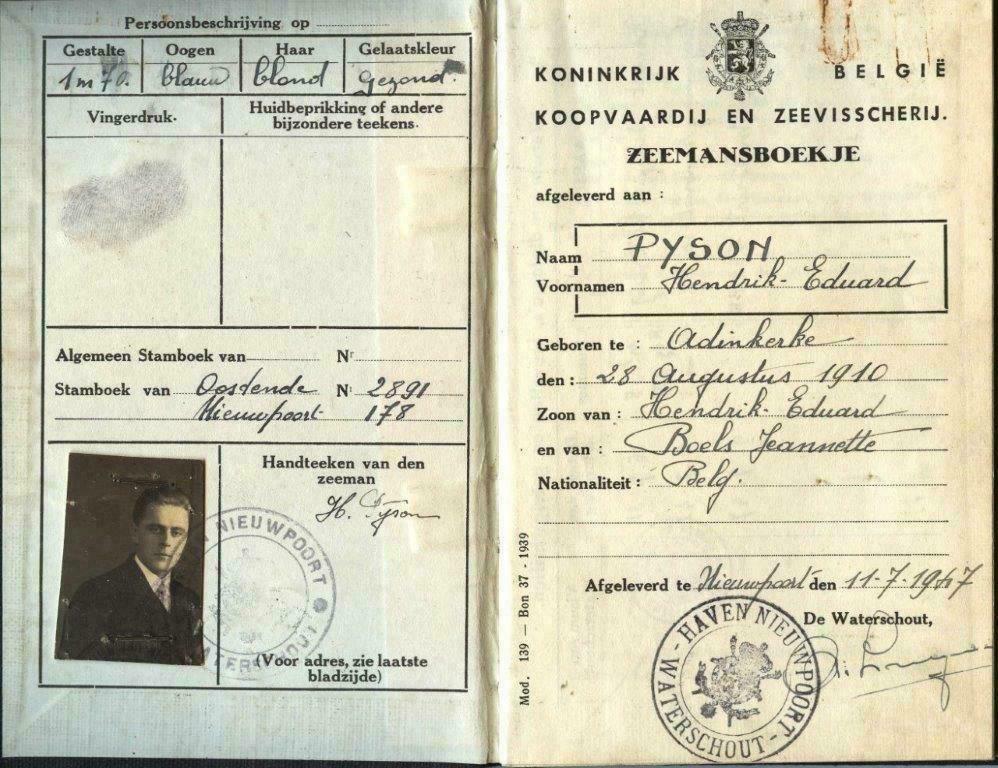 Persoonsbeschrijving op
Gestalte Oogen Haar Gelaatskleur
1m70. blauw blond gezond.
Vingerdruk.
Huidbeprikking of andere
bijzondere teekens.
Algemeen Stamboek van Nr
Stamboek van Oostende Nr 2891
Nieuwpoort 178
Handteeken van den
zeeman
H. Pyson
HAVEN NIEUWPOORT
WATERSCHOUT
(Voor adres, zie laatste
bladzijde)
KONINKRIJK BELGIË
KOOPVAARDIJ EN ZEEVISSCHERIJ.
ZEEMANSBOEKJE
afgeleverd aan :
Naam PYSON
Voornamen Hendrik-Eduard
Geboren te : Adinkerke
den : 28 Augustus 1910
Zoon van : Hendrik-Eduard
en van : Boels Jeannette
Nationaliteit : Belg.
Afgeleverd te Nieuwpoort den 11-7-1947
De Waterschout,
HAVEN NIEUWPOORT - WATERSCHOUT -
Mod. 139 — Bon 37 - 1939